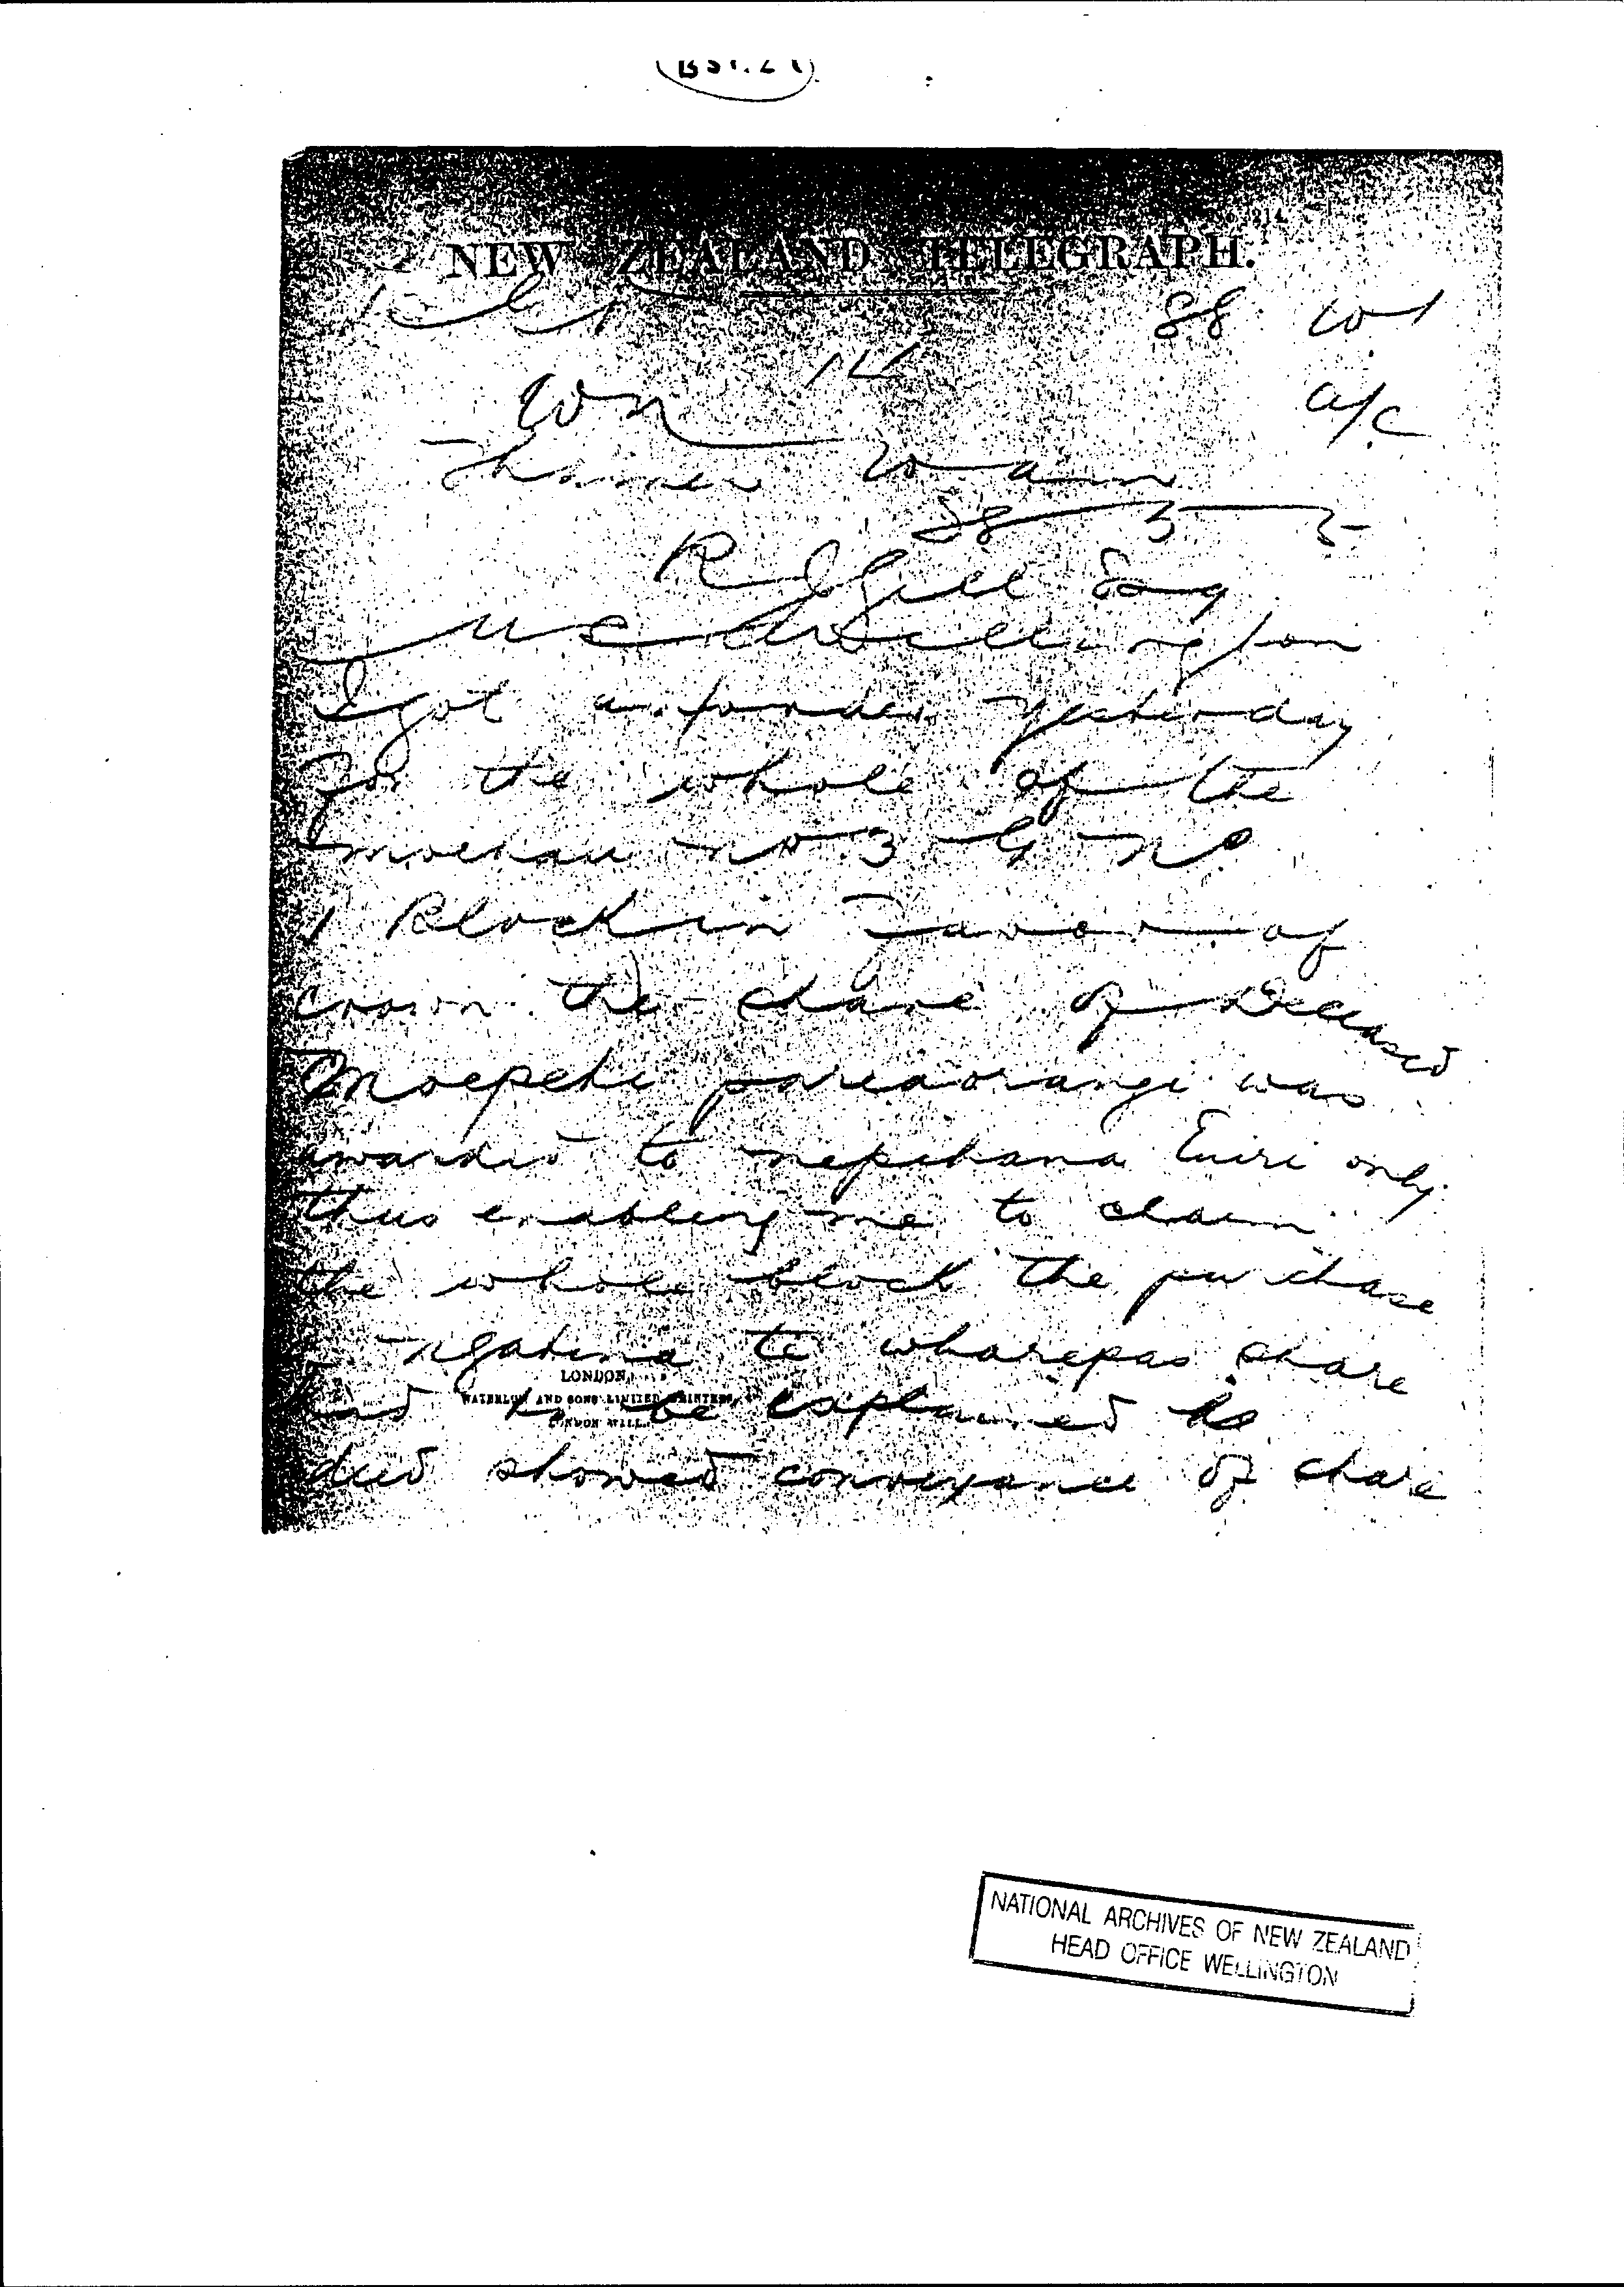 NEW ZEALAND TELEGRAPH.
88
Wn
a/c
Thames
88 3
R J Gill Esq
Wellington
I got an order yesterday
for the whole of the
moehau no 3 G no
1 Block in favor of
crown the share of Deceased
was
awarded to Eniri only
thus enabling me to claim
the whole block the purchase
te wharepas share
had to be explained as
deed showed conveyance of share
LONDON
WATERLOW AND SONS LIMITED PRINTERS
LONDON WALL.
NATIONAL ARCHIVES OF NEW ZEALAND
HEAD OFFICE WELLINGTON